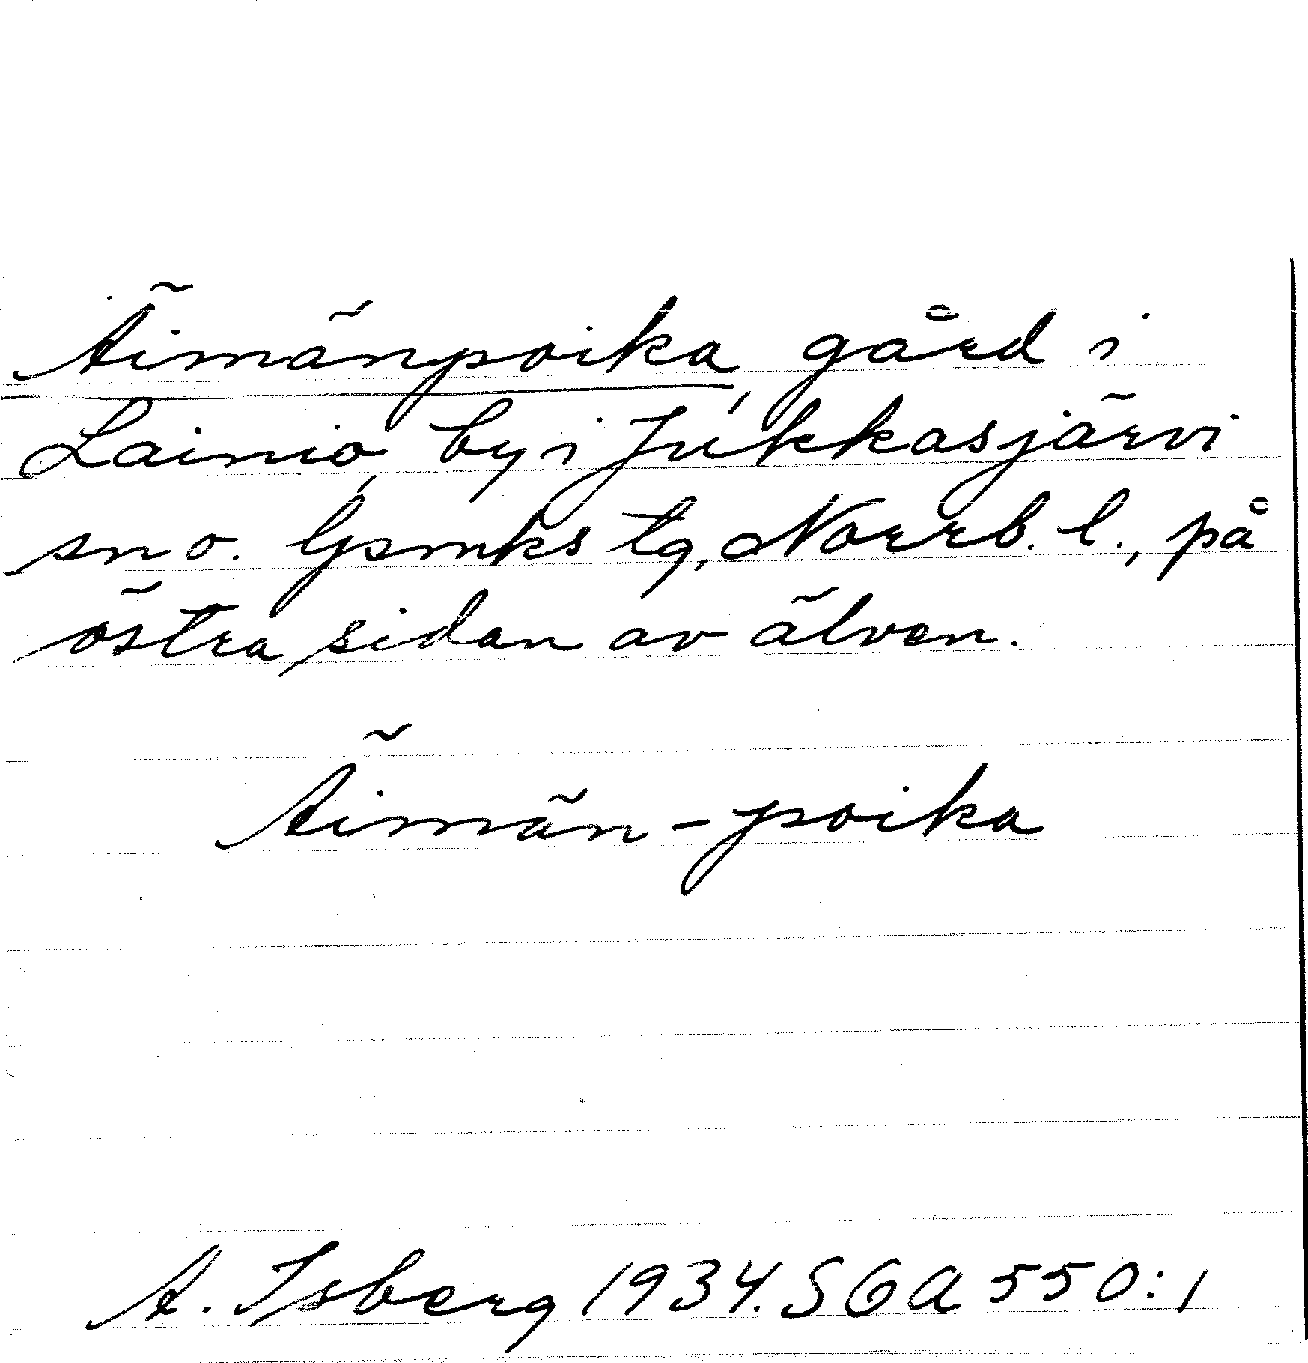 Äimänpoika, gård i
Lainio, by i Jukkasjärvi
sn o. lpsmks tg, Norrb. l., på
östra sidan av älven.
Äimän-poika
A. Isberg 1934. SGA 550:1